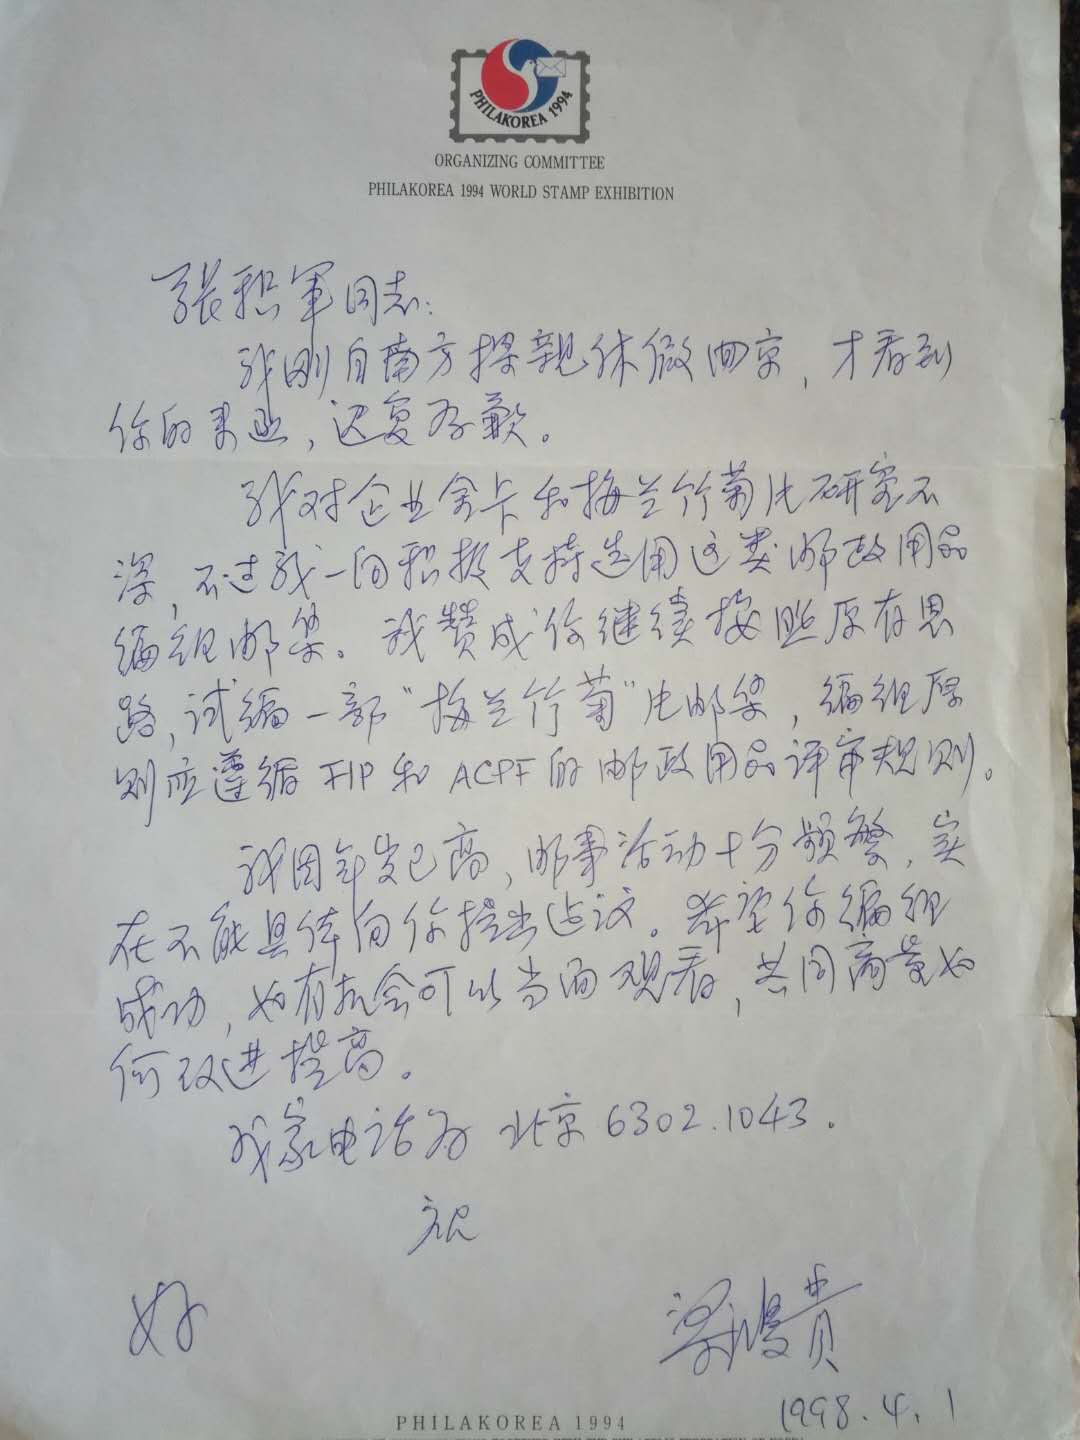 PHILAKOREA 1994
ORGANIZING COMMITTEE
PHILAKOREA 1994 WORLD STAMP EXHIBITION
张积军同志：
我刚自南方探亲休假回京，才看到
你的来函，迟复为歉。
我对企业金卡和梅兰竹菊片研究不
深，不过我一向积极支持选用这类邮政用品
编组邮集。我赞成你继续按照原有思
路，试编一部“梅兰竹菊”片邮集，编组原
则应遵循FIP和ACPF的邮政用品评审规则。
我因年岁已高，邮事活动十分频繁，实
在不能具体向你提出建议。希望你编组
成功，如有机会可以当面观看，共同商量如
何改进提高。
我家电话为 北京6302.1043.
祝
好
梁鸿贵
1998.4.1
PHILAKOREA 1994